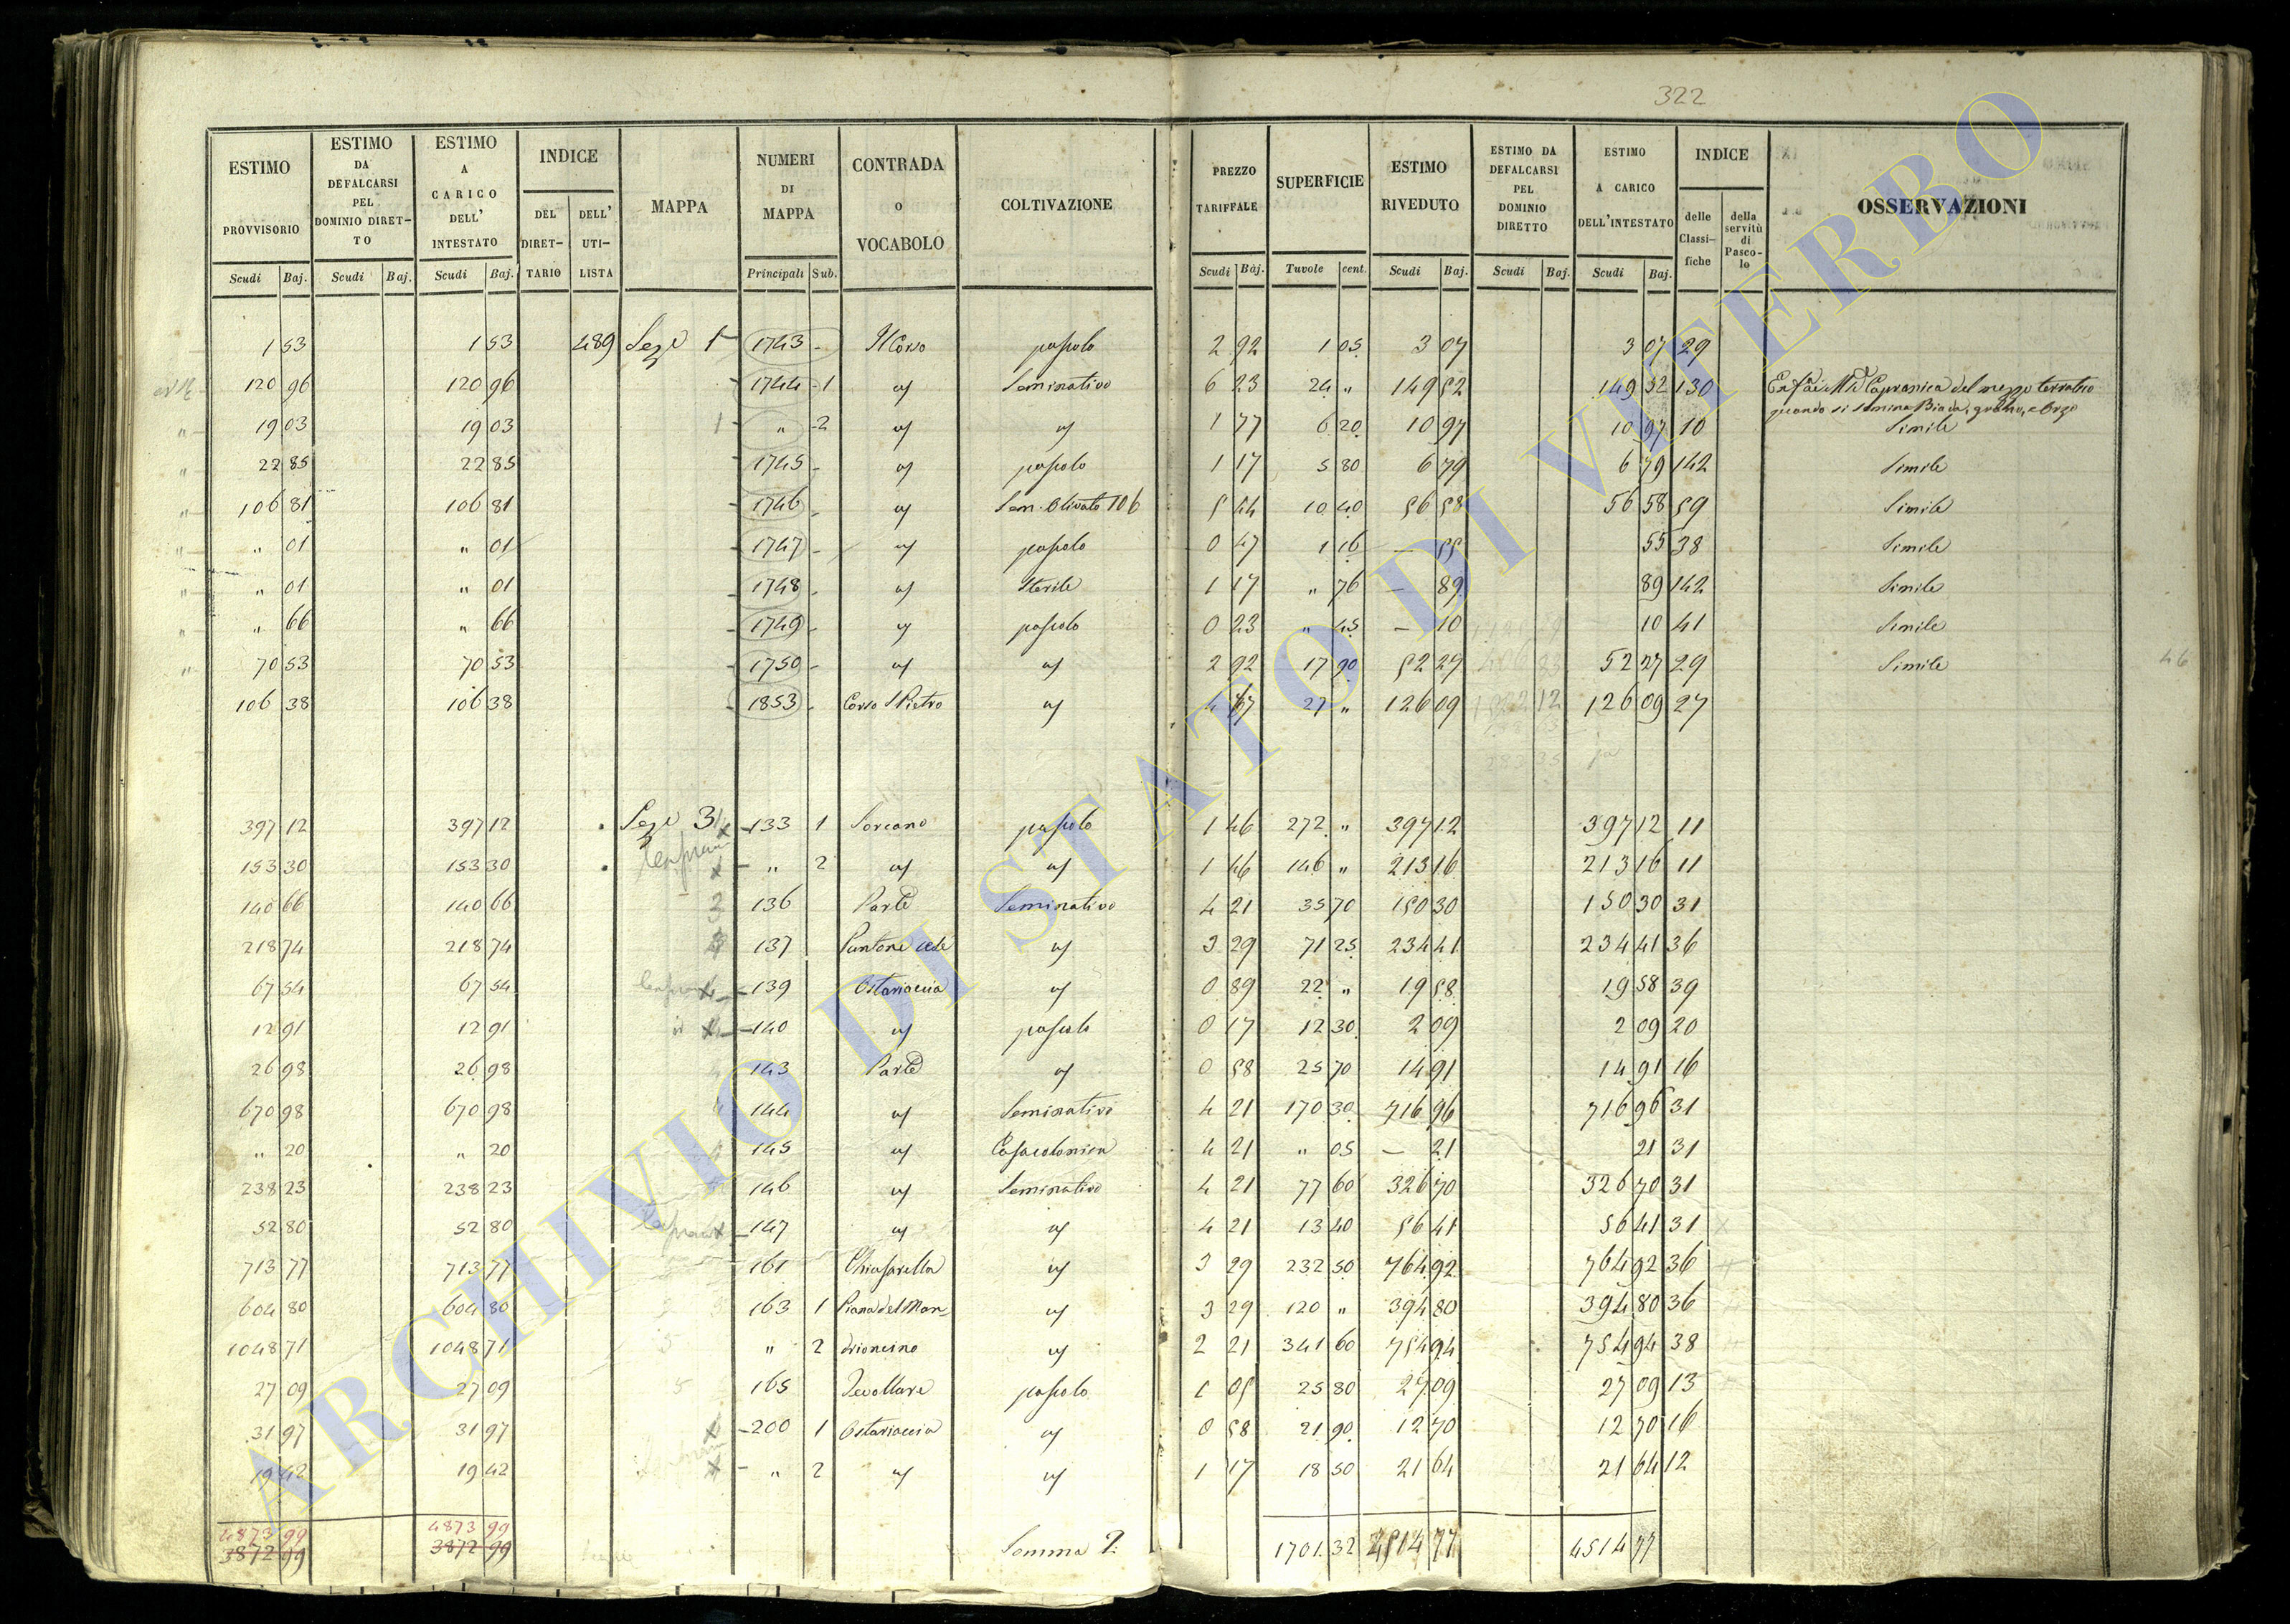 322
ESTIMO PROVVISORIO | ESTIMO DA DEFALCARSI PEL DOMINIO DIRETTO | ESTIMO A CARICO DELL' INTESTATO | INDICE DEL DIRETTARIO | DELL' UTILISTA | MAPPA | NUMERI DI MAPPA | CONTRADA O VOCABOLO | COLTIVAZIONE | PREZZO TARIFFALE | SUPERFICIE | ESTIMO RIVEDUTO | ESTIMO DA DEFALCARSI PEL DOMINIO DIRETTO | ESTIMO A CARICO DELL'INTESTATO | INDICE delle Classifiche | della servitù di Pascolo | OSSERVAZIONI
Scudi Baj. | Scudi Baj. | Scudi Baj. | Principali Sub. | Scudi Baj. | Tavole cent. | Scudi Baj. | Scudi Baj. | Scudi Baj.
1 53 | 1 53 | 489 | Seze 1 | 1743 - | Il Corso | pascolo | 2 92 | 1 05 | 3 07 | 3 07 | 29
120 96 | 120 96 | 1744 - 1 | id | Seminativo | 6 23 | 24 " | 149 52 | 149 52 | 130 | Capranica del mezzo terratico
quando si semina Biada, grano, e Orzo
19 03 | 19 03 | 1 | " - 2 | id | id | 1 77 | 6 20 | 10 97 | 10 97 | 10 | Simile
22 85 | 22 85 | 1745 - | id | pascolo | 1 17 | 5 80 | 6 79 | 6 79 | 142 | Simile
106 81 | 106 81 | 1746 - | id | Sem. Olivato 106 | 5 44 | 10 40 | 56 58 | 56 58 | 59 | Simile
" 01 | " 01 | 1747 - | id | pascolo | 0 47 | 1 16 | — 55 | 55 | 38 | Simile
" 01 | " 01 | 1748 - | id | Sterile | 1 17 | " 76 | — 89 | 89 | 142 | Simile
" 66 | " 66 | 1749 - | id | pascolo | 0 23 | " 45 | — 10 | 10 | 41 | Simile
70 53 | 70 53 | 1750 - | id | id | 2 92 | 17 90 | 52 27 | 52 27 | 29 | Simile | 46
106 38 | 106 38 | 1853 - | Corso S Pietro | id | 4 67 | 27 " | 126 09 | 126 09 | 27
397 12 | 397 12 | Seze 3 | 133 1 | Sorcano | pascolo | 1 46 | 272 " | 397 12 | 397 12 | 11
153 30 | 153 30 | " 2 | id | id | 1 46 | 146 " | 213 16 | 213 16 | 11
140 66 | 140 66 | 136 | Seminativo | 4 21 | 35 70 | 150 30 | 150 30 | 31
218 74 | 218 74 | 137 | Puntone | id | 3 29 | 71 25 | 234 41 | 234 41 | 36
67 54 | 67 54 | 139 | Ostariaccia | id | 0 89 | 22 " | 19 58 | 19 58 | 39
12 91 | 12 91 | 140 | id | pascolo | 0 17 | 12 30 | 2 09 | 2 09 | 20
26 98 | 26 98 | 143 | id | 0 58 | 25 70 | 14 91 | 14 91 | 16
670 98 | 670 98 | 144 | id | Seminativo | 4 21 | 170 30 | 716 96 | 716 96 | 31
" 20 | " 20 | 145 | id | Casa colonica | 4 21 | " 05 | — 21 | 21 | 31
238 23 | 238 23 | 146 | id | Seminativo | 4 21 | 77 60 | 326 70 | 326 70 | 31
52 80 | 52 80 | 147 | id | id | 4 21 | 13 40 | 56 41 | 56 41 | 31
713 77 | 713 77 | 161 | Chiusarella | id | 3 29 | 232 50 | 764 92 | 764 92 | 36
604 80 | 604 80 | 163 1 | Piana del Man- | id | 3 29 | 120 " | 394 80 | 394 80 | 36
1048 71 | 1048 71 | " 2 | drioncino | id | 2 21 | 341 60 | 754 94 | 754 94 | 38
27 09 | 27 09 | 5 | 165 | pascolo | 1 05 | 25 80 | 27 09 | 27 09 | 13
31 97 | 31 97 | 200 1 | Ostariaccia | id | 0 58 | 21 90 | 12 70 | 12 70 | 16
19 42 | 19 42 | " 2 | id | id | 1 17 | 18 50 | 21 64 | 21 64 | 12
4873 99 | 4873 99
3872 99 | 3872 99 | Somma 2 | 1701 32 | 4514 77 | 4514 77
ARCHIVIO DI STATO DI VITERBO